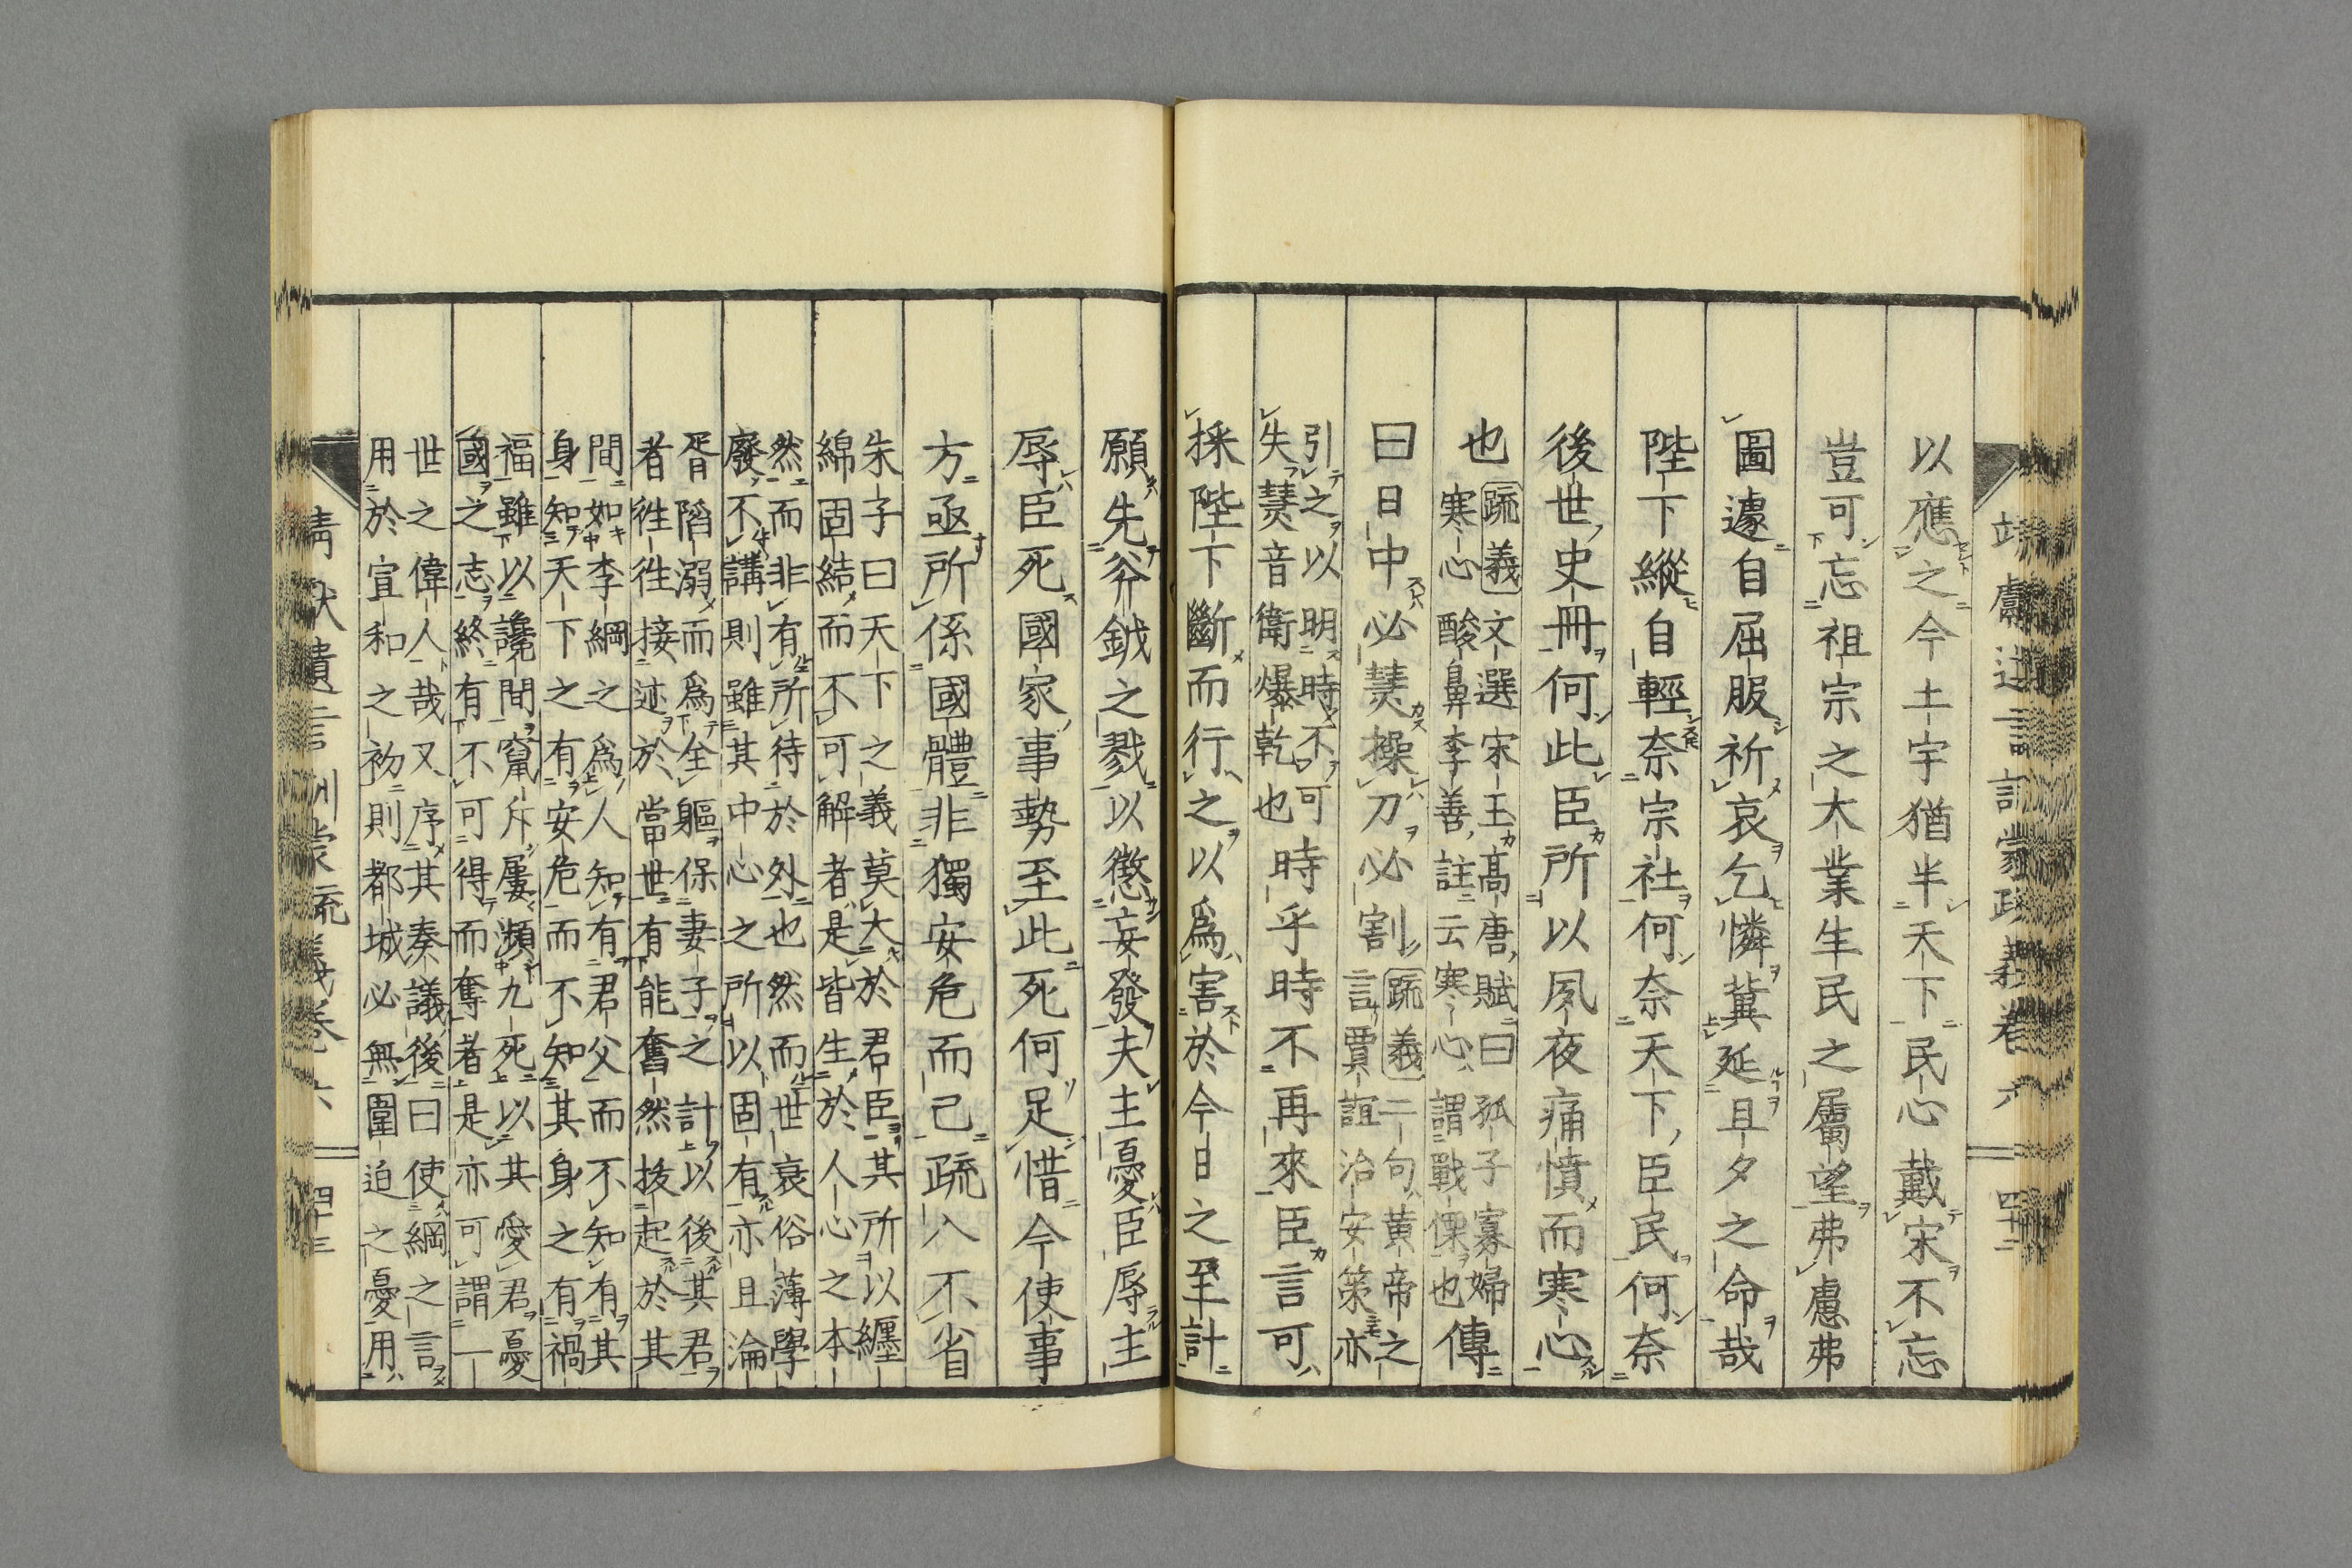 以應之今土宇猶半天下民心戴宋不忘
豈可忘祖宗之大業生民之屬望弗慮弗
圖遽自屈服祈哀乞憐冀延旦夕之命哉
陛下縱自輕奈宗社何奈天下臣民何奈
後世史冊何此臣所以夙夜痛憤而寒心
也
疏義文選宋玉高唐賦曰孤子寡婦
寒心酸鼻李善註云寒心謂戰慄也
傳
曰日中必熭操刀必割
疏義二句黃帝之
言賈誼治安策亦
引之以明時不可
失熭音衛爆乾也
時乎時不再來臣言可
採陛下斷而行之以爲害於今日之至計
願先斧鉞之戮以懲妄發夫主憂臣辱主
辱臣死國家事勢至此死何足惜今使事
方亟所係國體非獨安危而已疏入不省
朱子曰天下之義莫大於君臣其所以纏
綿固結而不可解者是皆生於人心之本
然而非有所待於外也然而世衰俗薄學
廢不講則雖其中心之所以固有亦且淪
胥陷溺而爲全軀保妻子之計以後其君
者徃徃接迹於當世有能奮然拔起於其
間如李綱之爲人知有君父而不知有其
身知天下之有安危而不知其身之有禍
福雖以讒間竄斥屢瀕九死以其愛君憂
國之志終有不可得而奪者是亦可謂一
世之偉人哉又序其奏議後曰使綱之言
用於宣和之初則都城必無圍迫之憂用
靖獻遺言訓蒙疏義卷六
四十三